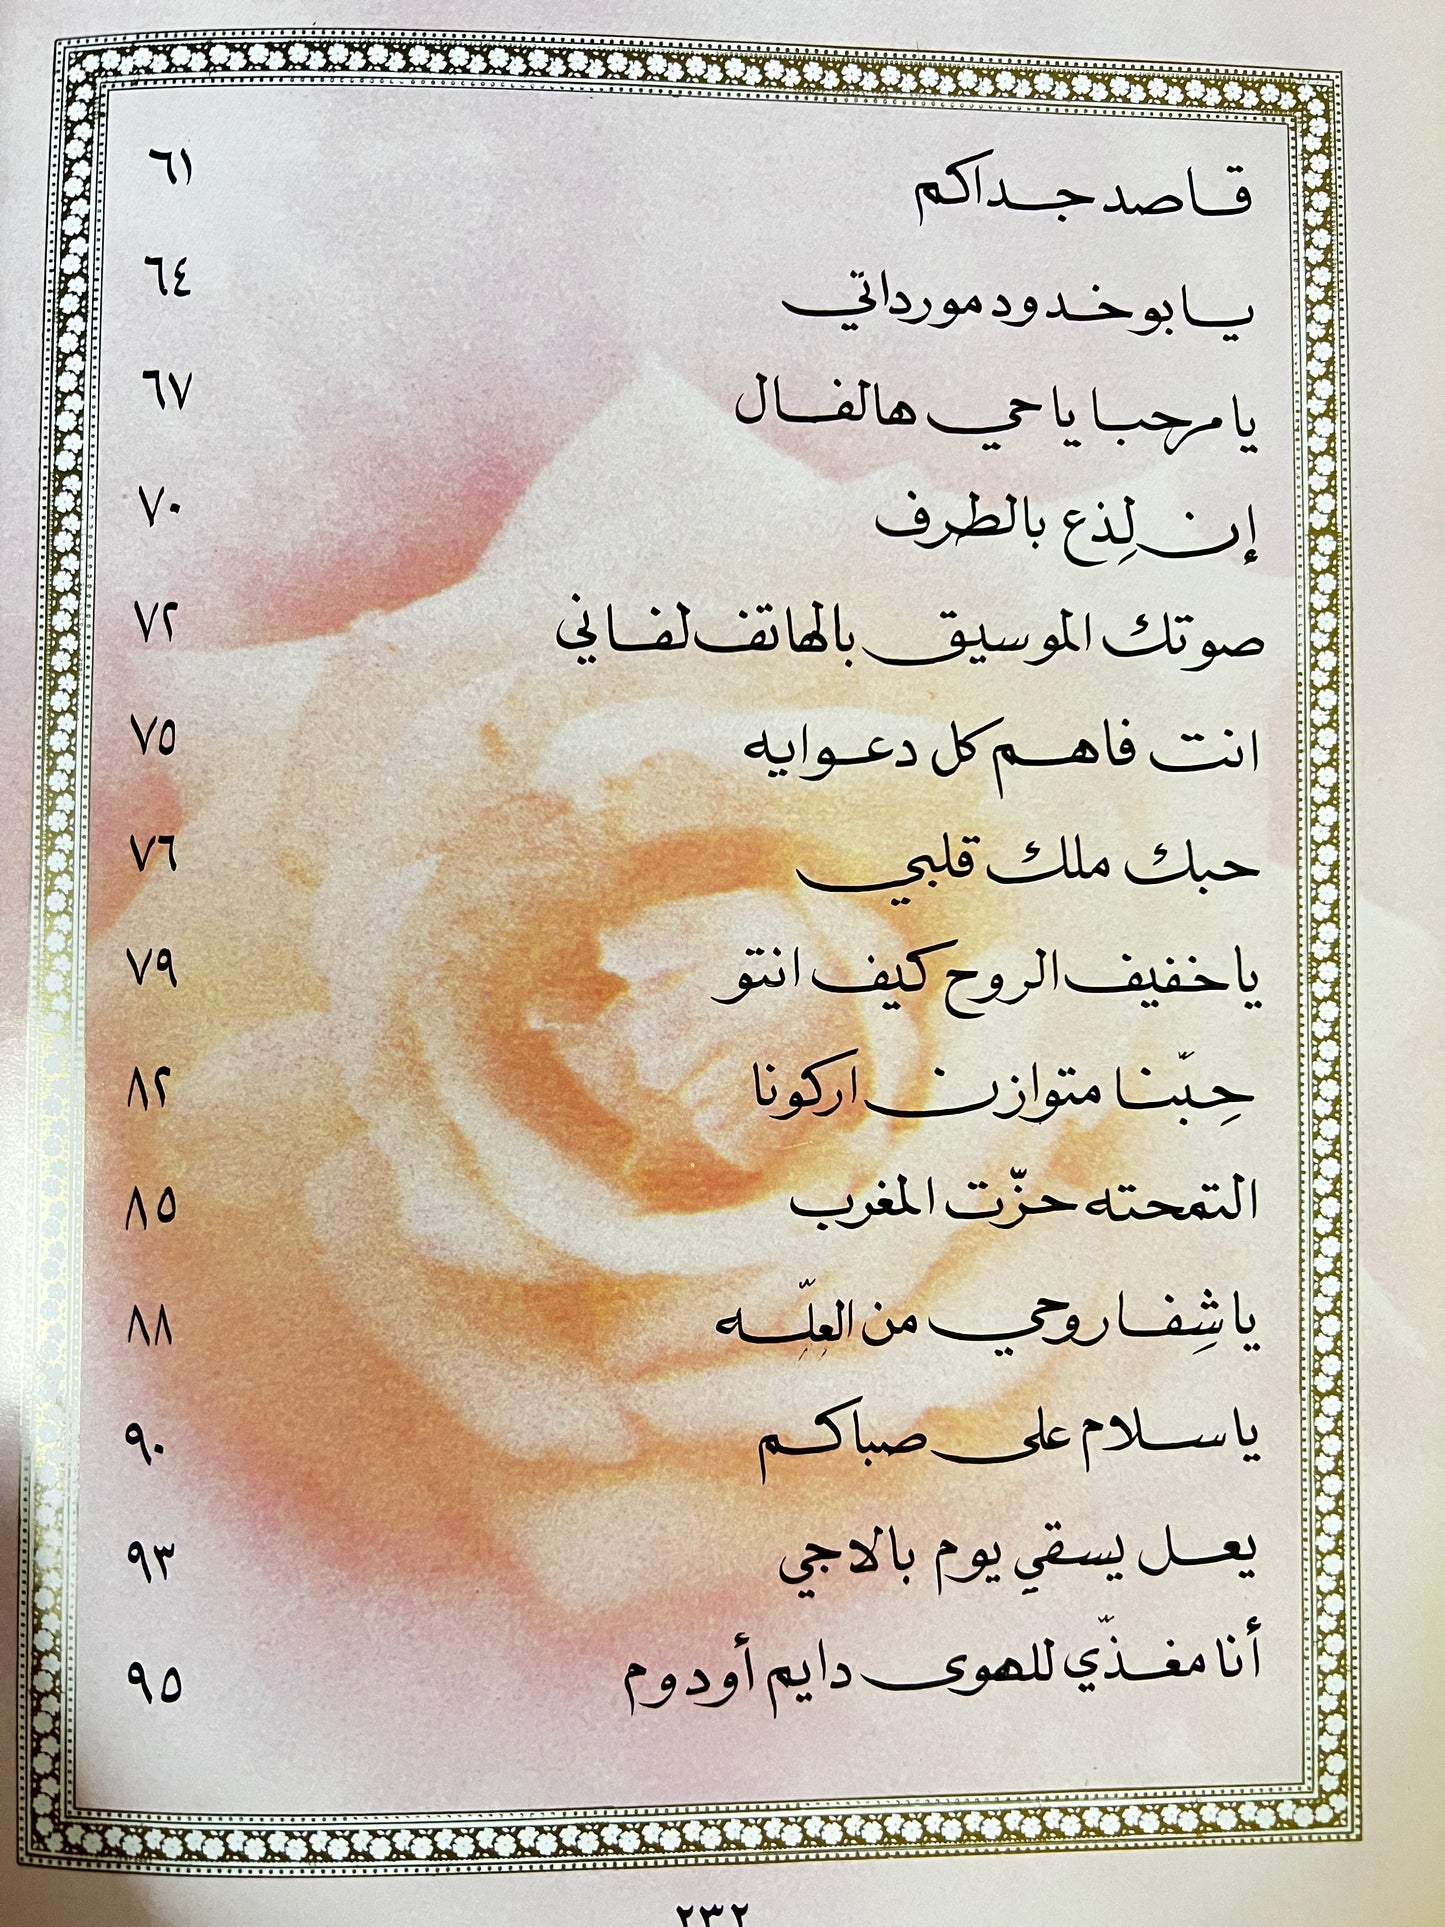 قاصد جداكم ٦١
يا بو خدود مورداتي ٦٤
يا مرحبا يا حي هالفال ٦٧
إن لِذع بالطرف ٧٠
صوتك الموسيق بالهاتف لفاني ٧٢
انت فاهم كل دعوايه ٧٥
حبك ملك قلبي ٧٦
يا خفيف الروح كيف انتو ٧٩
حِبّنا متوازن اركونا ٨٢
التمحته حزّت المغرب ٨٥
يا شِفا روحي من العِلِّه ٨٨
يا سلام على صباكم ٩٠
يعل يسقي يوم بالاجي ٩٣
أنا مغذّي للهوى دايم أودوم ٩٥
٢٣٢